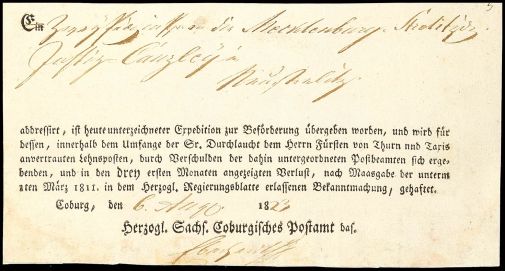 Ein
der Mecklenburg-Strelitz
Justiz-Canzley in
Neustrelitz
addressirt, ist heute unterzeichneter Expedition zur Beförderung übergeben worden, und wird für
dessen, innerhalb dem Umfange der Sr. Durchlaucht dem Herrn Fürsten von Thurn und Taxis
anvertrauten Lehnsposten, durch Verschulden der dahin untergeordneten Postbeamten sich erge-
benden, und in den drey ersten Monaten angezeigten Verlust, nach Maasgabe der unterm
2ten März 1811. in dem Herzogl. Regierungsblatte erlassenen Bekanntmachung, gehaftet.
Coburg, den 6. Aug 182
Herzogl. Sachs. Coburgisches Postamt das.